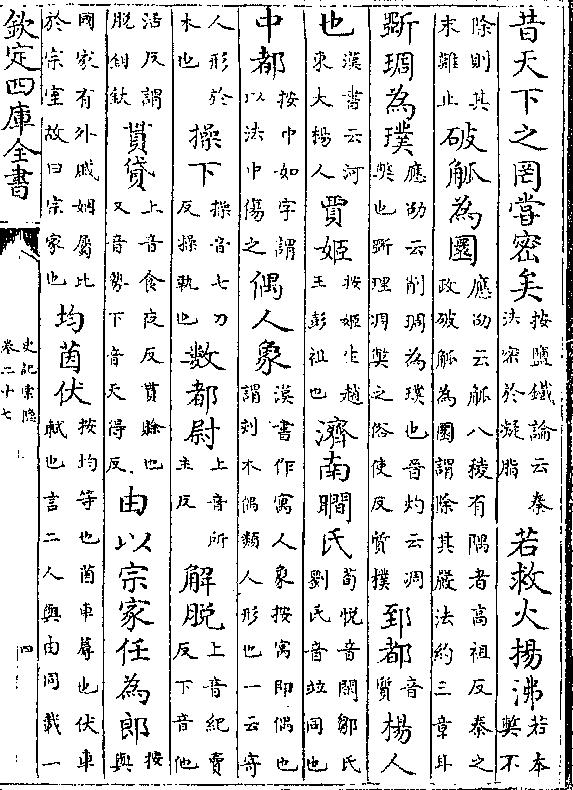 昔天下之罔嘗密矣按鹽鐵論云秦法密於凝脂若救火揚沸若本獘不
除則其末難止破觚為圜應劭云觚八稜有隅者高祖反秦之政破觚為圜謂除其嚴法約三章耳
斲琱為璞應劭云削琱為璞也音灼云凋獘也斲理凋獘之俗使反質樸郅都音質楊人
也漢書云河東大楊人賈姬按姬生趙王彭祖也濟南瞷氏荀悅音閑鄒氏劉氏音竝同也
中都按中如字謂以法中傷之偶人象漢書作寓人象按寓即偶也謂刻木偶類人形也一云寄
人形於木也操下操音七刀反操執也數都尉上音所主反解脫上音紀賣反下音他
活反謂脫鉗釱貰貸上音食夜反貰賒也又音勢下音天得反由以宗家任為郎按與
國家有外戚姻屬比於宗室故曰宗家也均茵伏按均等也茵車蓐也伏車軾也言二人與由同載一
欽定四庫全書
史記索隱
卷二十七
四